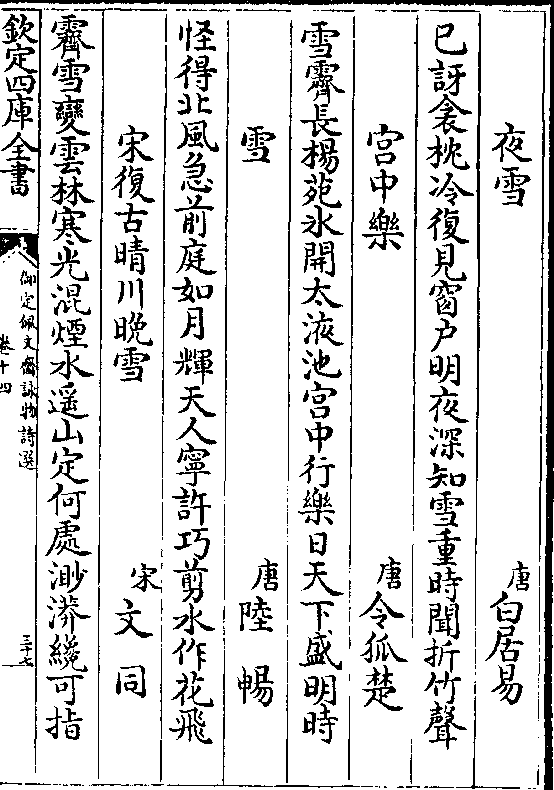 夜雪
唐白居易
已訝衾枕冷復見窗户明夜深知雪重時聞折竹聲
宫中樂
唐令狐楚
雪霽長楊苑氷開太液池宫中行樂日天下盛明時
雪
唐陸暢
怪得北風急前庭如月輝天人寧許巧剪水作花飛
宋復古晴川晚雪
宋文同
霽雪變雲林寒光混煙水遥山定何處渺漭纔可指
欽定四庫全書
御定佩文齋詠物詩選
卷十四
三十七